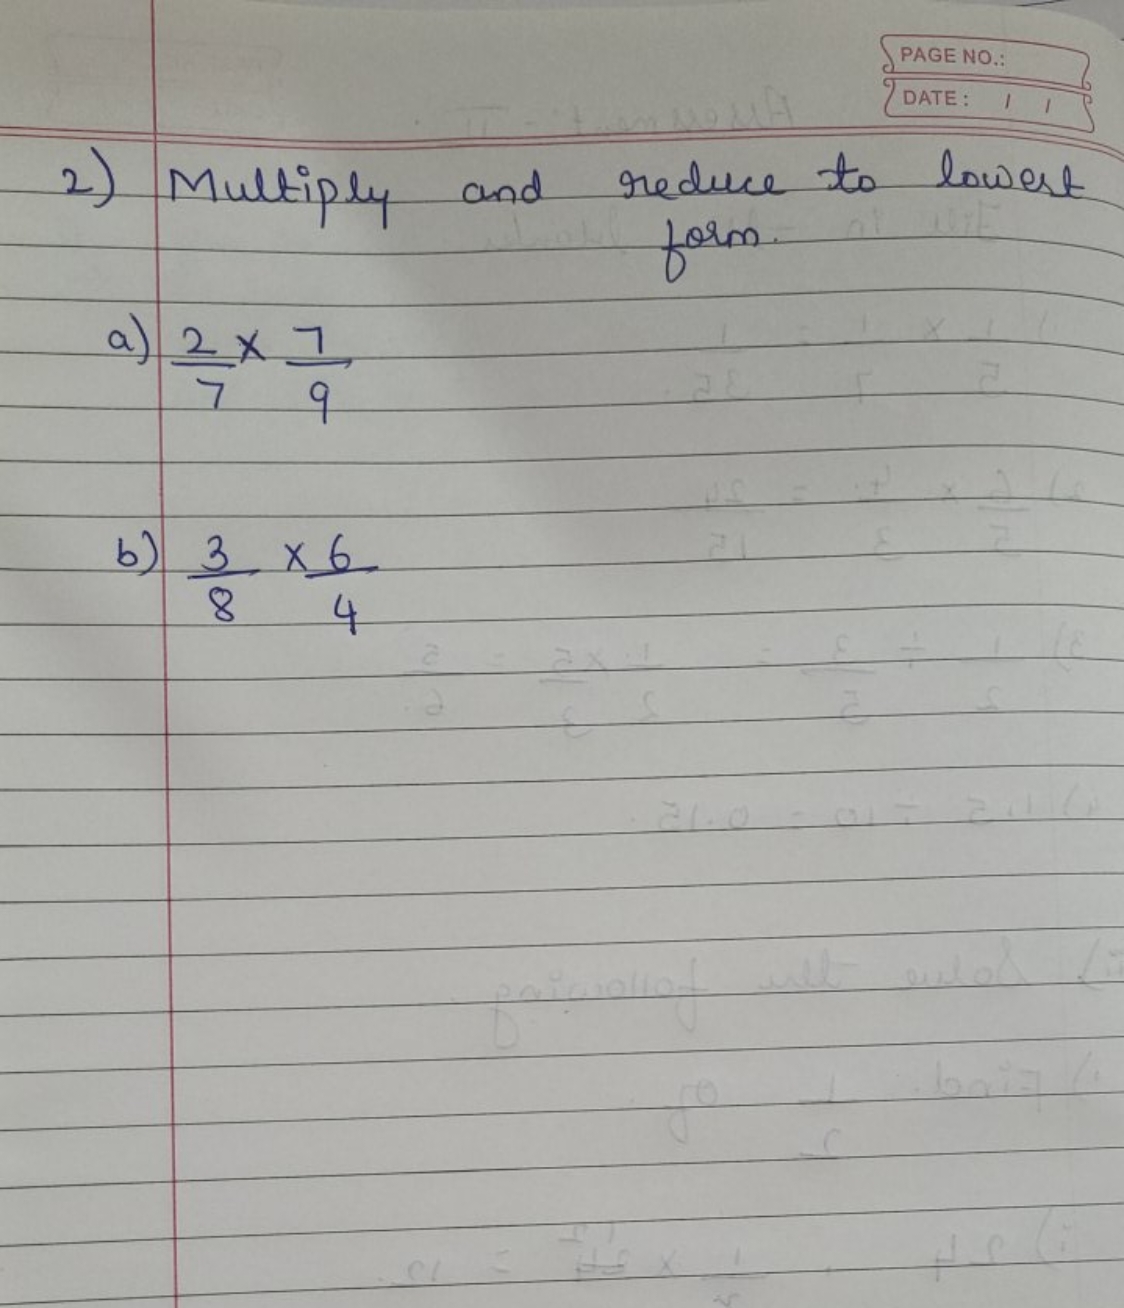 PAGE NO.:
DATE: / /
2) Multiply and reduce to lowest
form.
a) 2/7 × 7/9
b) 3/8 × 6/4